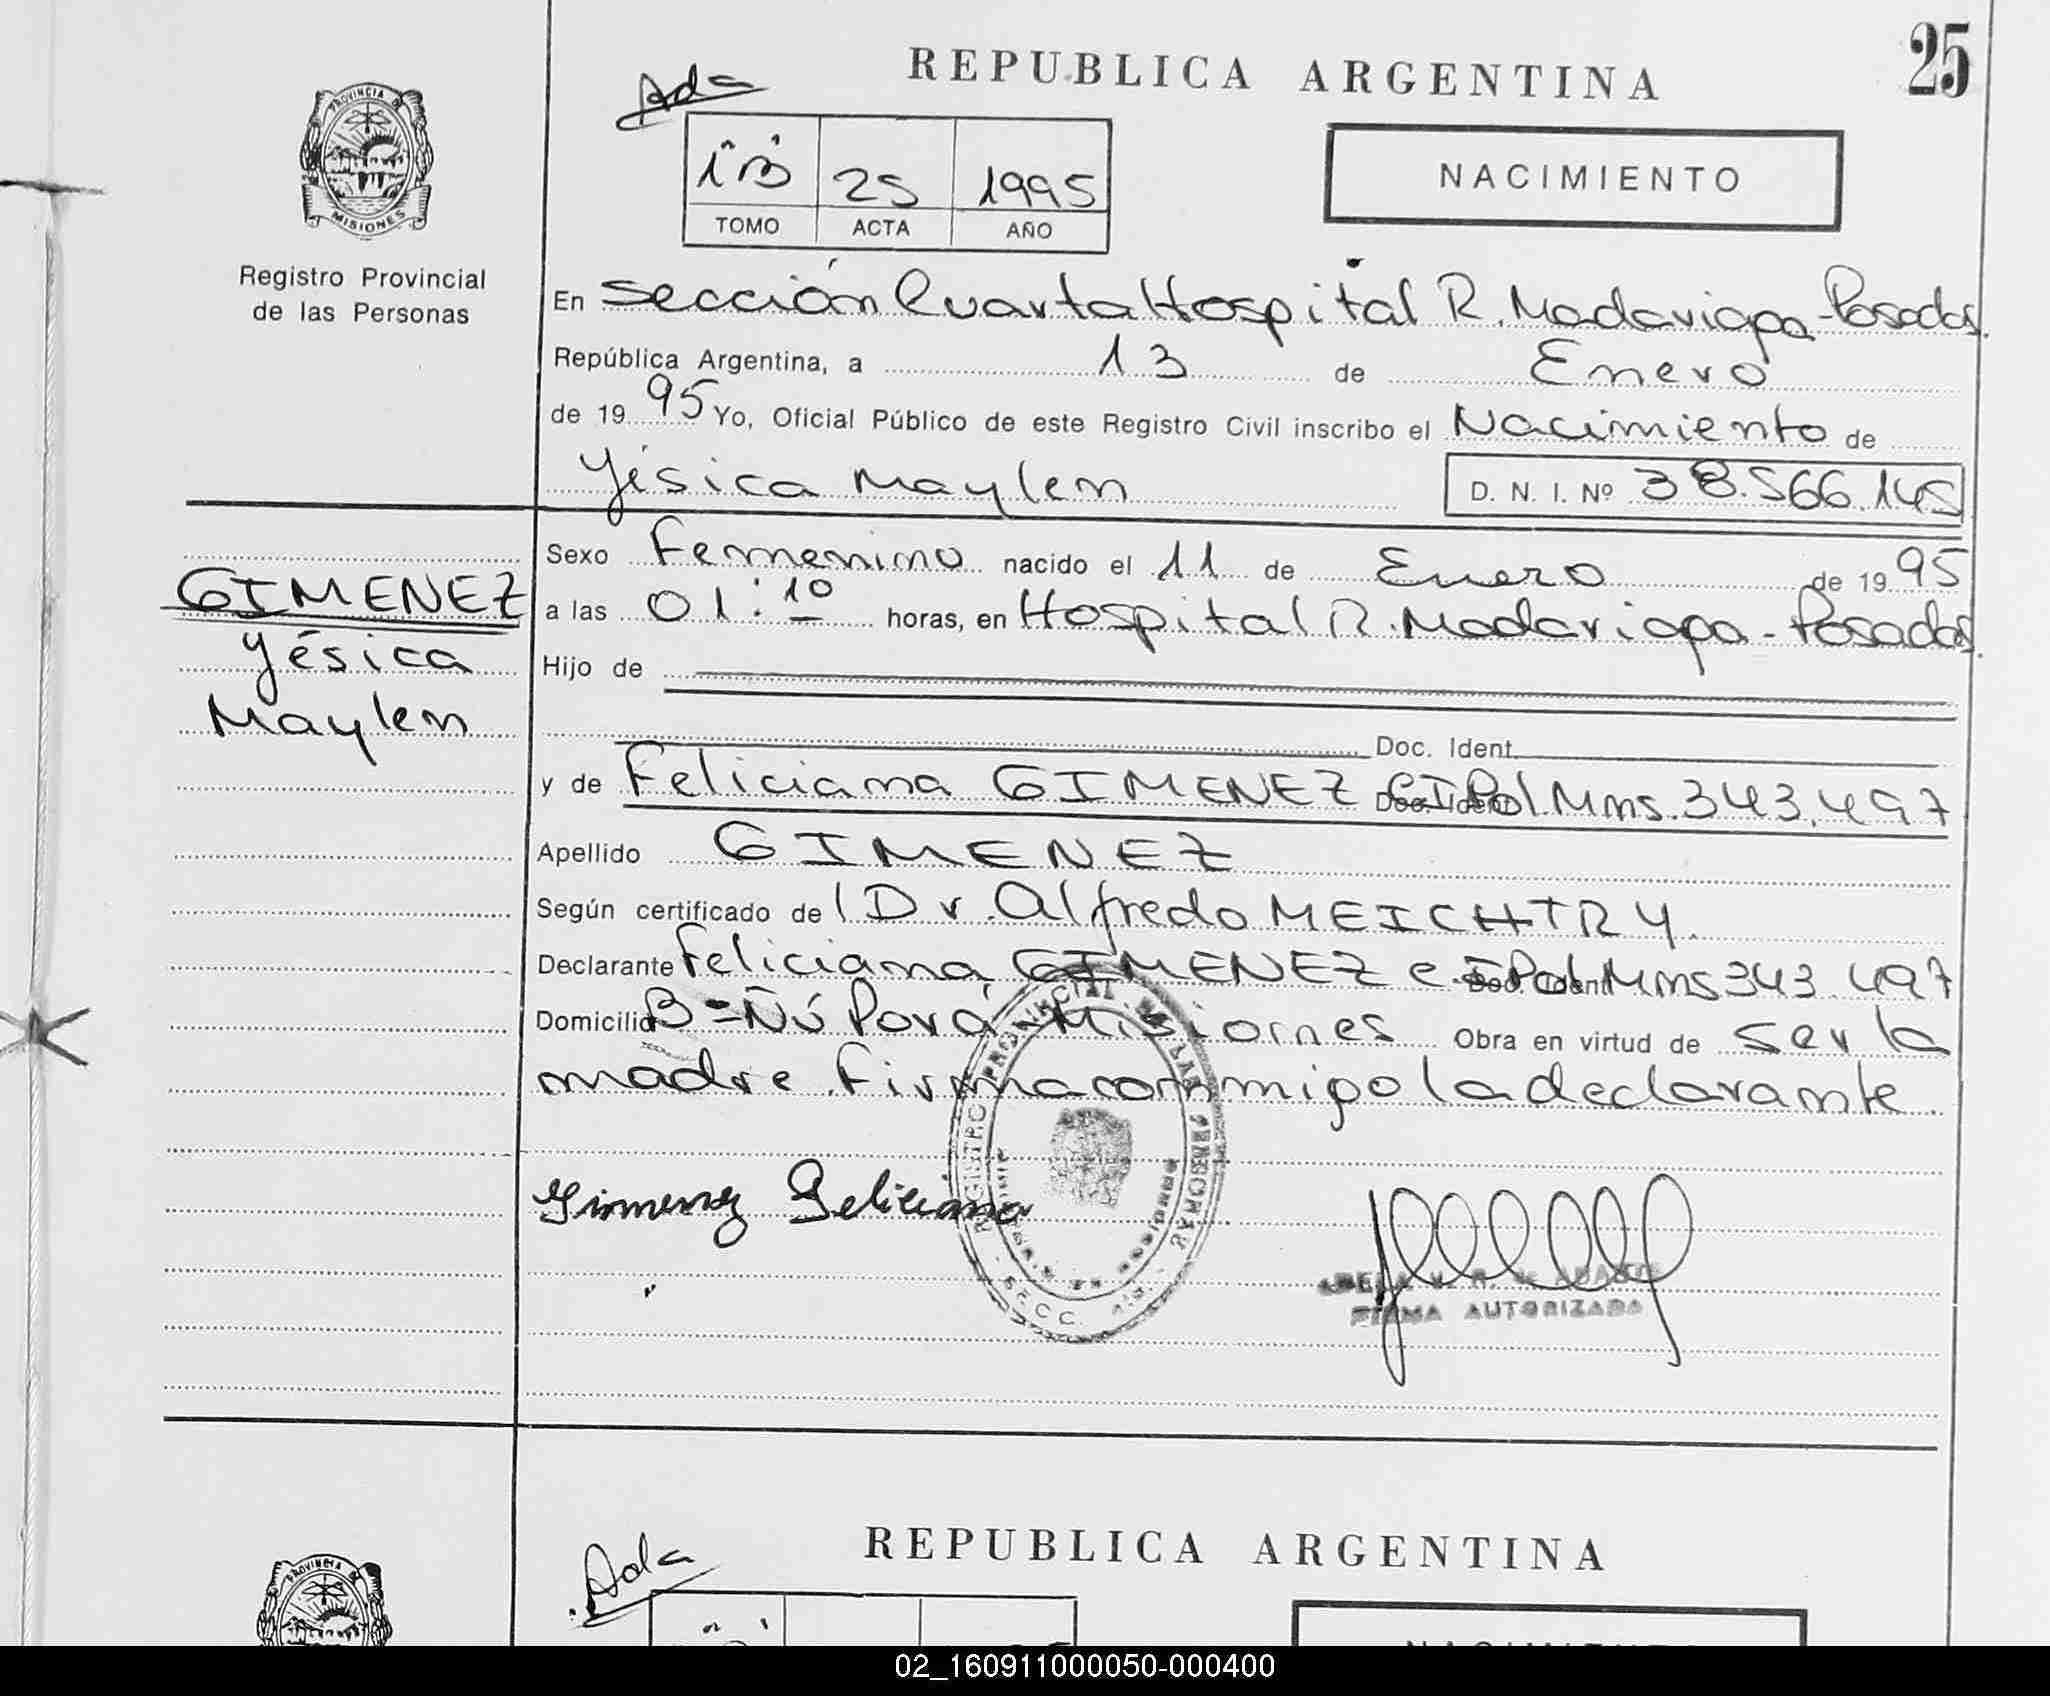 REPUBLICA ARGENTINA
25
Ada
1 "B" 25 1995
TOMO ACTA AÑO
NACIMIENTO
PROVINCIA DE
MISIONES
Registro Provincial
de las Personas
En Sección Cuarta Hospital R. Madariaga - Posadas.
República Argentina, a 13 de Enero
de 19 95 Yo, Oficial Público de este Registro Civil inscribo el Nacimiento de
Yésica Maylen D. N. I. Nº 38.566.145
GIMENEZ
Yésica
Maylen
Sexo Femenino nacido el 11 de Enero de 19 95
a las 01:10 horas, en Hospital R. Madariaga - Posadas.
Hijo de
Doc. Ident.
y de Feliciana GIMENEZ CI Pol Mns. 343.497
Apellido GIMENEZ
Según certificado del Dr. Alfredo MEICHTRY.
Declarante Feliciana GIMENEZ Pol Mns 343.497
Domicilio Bº Ñú Porá Misiones Obra en virtud de ser la
madre. Firma conmigo la declarante
Gimenez Feliciana
REGISTRO PROVINCIAL DE LAS PERSONAS
SECC.
FIRMA AUTORIZADA
REPUBLICA ARGENTINA
Ada
PROVINCIA DE
NACIMIENTO
02_160911000050-000400